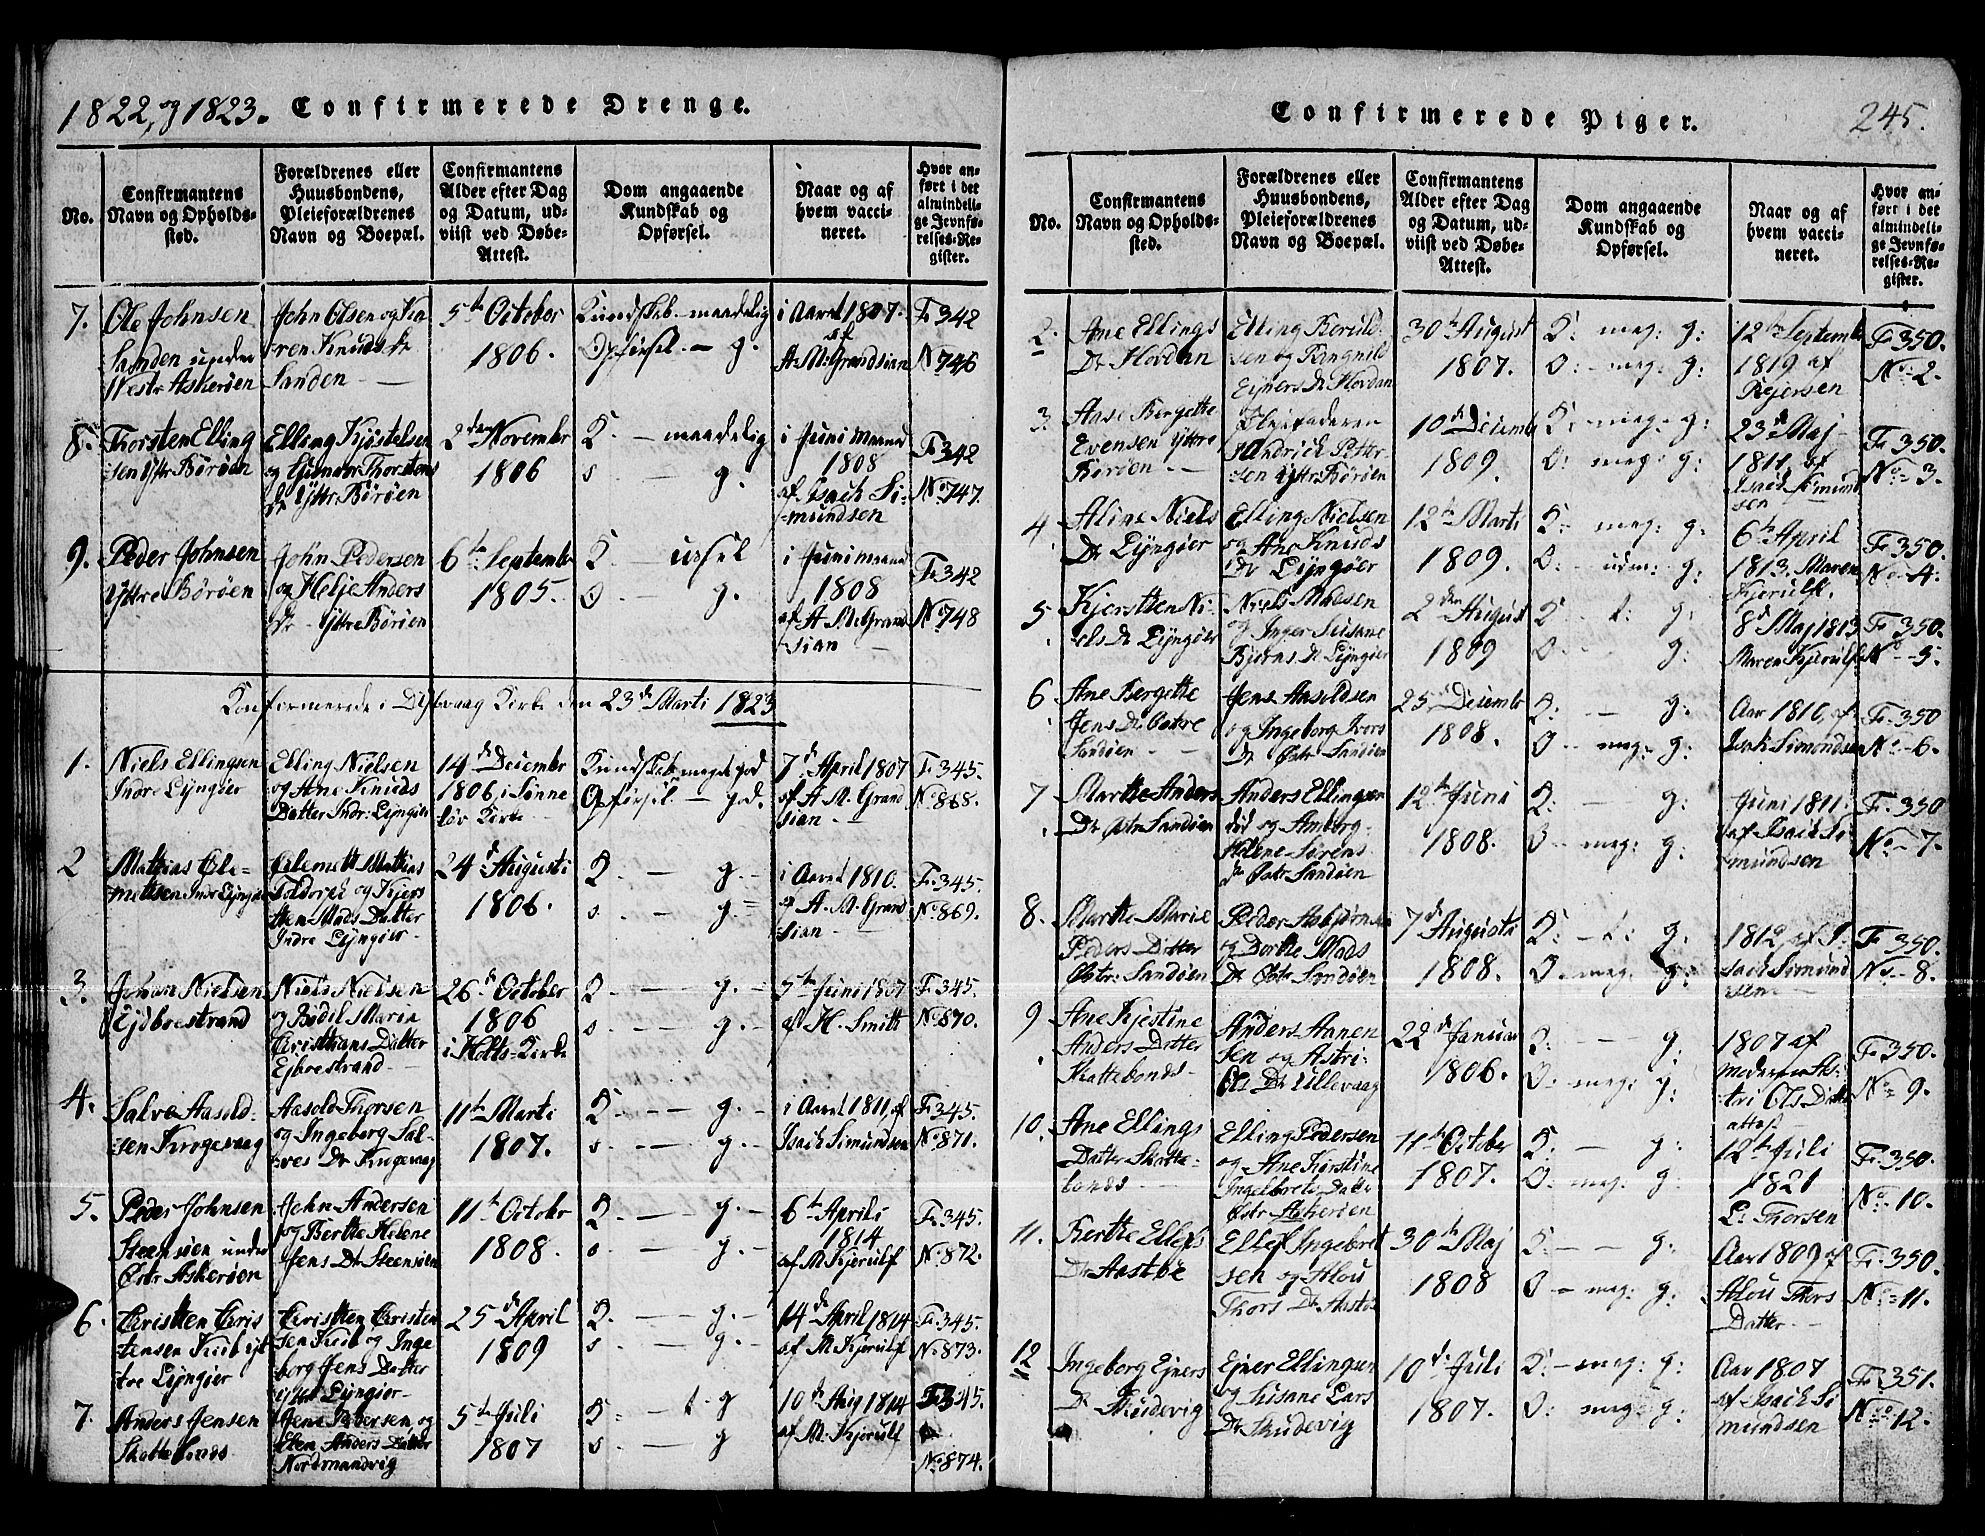 1822, og 1823. Confirmerede Drenge.
No.
Confirmantens Navn og Opholdssted.
Forældrenes eller Huusbondens, Pleieforældrenes Navn og Boepæl.
Confirmantens Alder efter Dag og Datum, udviist ved Døbe-Attest.
Dom angaaende Kundskab og Opførsel.
Naar og af hvem vaccineret.
Hvor anført i det almindelige Jevnførelses-Register.
7.
Ole Johnsen
Sanden under
Westr Askerøen
John Olsen og Ka
ren Knuds Dr
Sanden
5th October
1806.
Kundskab - maadelig
Opførsel - g.
i Aaret 1807.
af
A. M. Grandsian
F. 342
No 746
8.
Thorsten Elling
sen Yttr Børøen
Elling Kjostelsen
og Gunor Thorstens
Dr Yttr Børøen
2den Novembr
1806
K. - maadelig
o - g.
i Juni Maaned
1808
af Isach Si-
mundsen
F. 342
No 747.
9.
Peder Johnsen
Yttre Børøen
John Pedersen
og Helje Anders
Dr Yttre Børöen
6th Septembr
1805.
K. ussel
O - g.
i Juni Maaned
1808
af A M. Grand
sian
F. 342
No 748
Konfirmerede i Dybvaag Kirke den 23d Marti 1823
1.
Niels Ellingsen
Indre Lyngøer
Elling Nielsen
og Ane Knuds
Datter Indr: Lyngøer
14d Decembr
1806, i Sønne
løv Kirke
Kundskab meget god
Opførsel - god.
7d April 1807
af A M. Grand
sian
F. 345.
No 868.
2
Mathias Cle-
mettsen Indr Lyngøer
Clemett Mathias
Toldorph og Kjers
tten Mads Datter
Indre Lyngøer
24d Augusti
1806.
K - g. -
o. - g. -
i Aaret 1810.
af A. M. Grand
sian
F. 345.
No 869.
3.
Johan Nielsen
Eydboestrand
Niels Nielsen
og Bodil Maria
Cristhians Datter
Ejboestrand
26d October
1806
i Holts-Kirke
K. - g. -
o. - g. -
5th Juni 1807
af H. Smitt
F. 345.
No 870.
4.
Salve Aasold-
sen Krogevaag
Aasold Thorsen
og Ingeborg Sal-
ves Dr Krogevaag
11th Marti
1807.
K. - g. -
o. - g.
i Aaret 1811, af
Isach Simundsen
F. 345.
No 871.
5.
Peder Johnsen
Steensøen under
Østr Askerøen
John Andersen
og Berthe Helene
Jens Dr Steensøen
11th Octobr
1808.
K. - g. -
o. - g. -
6th Aprili
1814
af M. Kjerulf
F. 345.
No 872.
6.
Cristten Cris
tensen Krib yt
tre Lyngöer
Cristten Cristen
sen Krib og Inge
borg Jens Datter
yttre Lyngöer
25d April
1809
K. - g. -
o. - g. -
14d April 1814
af M. Kjerulf
F. 345.
No 873.
7.
Anders Jensen
Skottebonds
Jens Pedersen og
Elen Anders Datter
Nordmandvig
5th Juli
1807
K - t. g
o. - g
10d Aug 1814
af M. Kjerulf
F. 345.
No 874.
Confirmerede Piger. 245.
No.
Confirmantens Navn og Opholdssted.
Forældrenes eller Huusbondens, Pleieforældrenes Navn og Boepæl.
Confirmantens Alder efter Dag og Datum, udviist ved Døbe-Attest.
Dom angaaende Kundskab og Opførsel.
Naar og af hvem vaccineret.
Hvor anført i det almindelige Jevnførelses-Register.
2.
Ane Ellings
Dr Hovdan
Elling Teruls-
sen og Rangnild
Ejners Dr Hovdan
30th August
1807.
K: meg: g:
O: - meg: g:
12th Septembr
1819 af
Rejersen
F. 350.
No - 2.
3.
Aase Bergette
Evensen Yttre
Børöen
Pleifaderen
Hindrick Petter
sen Yttr Børøen
10d Decembr
1809.
K: - meg: g:
O: meg: g:
23d Maj
1811, af
Isach Simund
sen
F. 350.
No - 3.
4.
Aline Niels
Dr Lyngøer
Elling Nielsen
og Ane Knuds
Dr Lyngöer
12th Marti
1809.
K: meg: g:
O: - udm: g:
6th April
1813. Maren
Kjerulf.
F. 350.
No - 4.
5
Kjerstten Ni-
els Dr Lyngøer
Niels Madsen
og Inger Susane
Bjorns Dr Lyngøer
2den August
1809
K - t: g:
O: - g:
8d Maj 1813
Maren Kjerulf
F. 350.
No - 5.
6
Ane Bergette
Jens Dr Østre
Sandøen
Jens Aasoldsen
og Ingeborg Ivers
Dr Østr Sandøen
25d Decembr
1808.
K: - g:
O - meg: g:
Aar 1810, af
Isach Simondsen
F. 350
No - 6.
7
Marthe Anders
Dr Østr Sandøen
Anders Ellingsen
död og Amborg
Helene Sörens
Dr Østr Sandøen
12th Juni
1808.
K: - g:
O - meg: g:
Juni 1811.
af Isach Si
mundsen
F. 350
No - 7.
8.
Marthe Marie
Peders Datter
Østre: Sandøen
Peder Asbjørnsen
og Dorthe Mads
Dr Østr Sandøen
7d Augusti
1808.
K: - t: g:
O - meg: g:
1812 af I-
sach Simund
sen
F. 350.
No - 8.
9
Ane Kjestine
Anders Datter
Skattebonds
Anders Aanen
sen og Astri
Ols Dr Lillevaag
22d Januar
1806.
K: - g:
O: meg: g:
1807 af
moderen As-
tri Ols Datter
attest
F. 350.
No 9.
10.
Ane Ellings
Datter Skotte-
bonds
Elling Pedersen
og Ane Kirstine
Ingelbrets Datter
Østr Askerøen
11th October
1807.
K: - g:
O: meg: g:
12th Juli
1821
L. Thorsen
F. 350.
No - 10.
11.
Berthe Ellefs
Dr Aastøe
Ellef Ingebret
sen og Alou
Thors Dr Aastø
30th Maj
1808
K: - - g:
O - meg: g:
Aar 1809 af
Alou Thors
Datter
F. 350.
No - 11.
12
Ingeborg Ejners
Dr Skudevig
Ejner Ellingsen
og Susane Lars
Dr Skudevig
10d Juli
1807.
K: - meg: g:
O: meg: g:
Aar 1807
af Isach Si
mundsen
F. 351.
No 12.